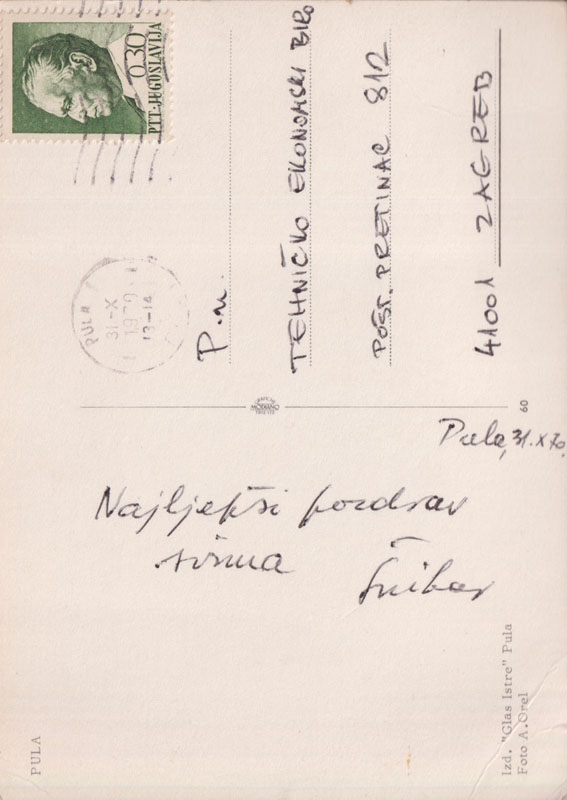 0.30
PTT-JUGOSLAVIJA
PULA
31-X
1970
13-14
P.n.
TEHNIČKO EKONOMSKI BIRO
POŠT. PRETINAC 812
41001 ZAGREB
GRAFICHE
MODIANO
60
Pula, 31.X 70.
Najljepši pozdrav
svima
PULA
Izd. "Glas Istre" Pula
Foto A. Orel